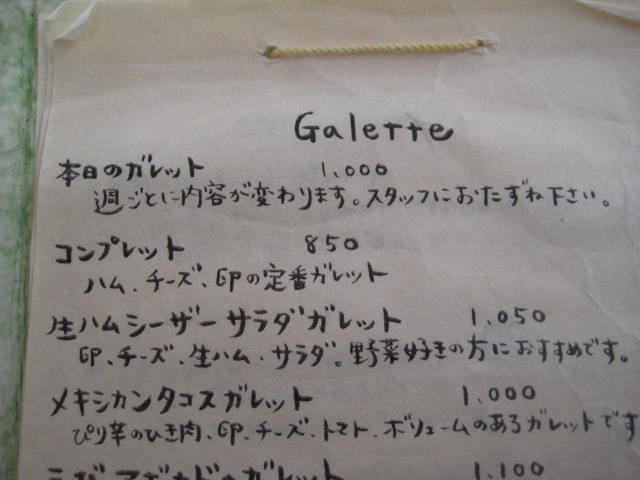 Galette
本日のガレット 1,000
週ごとに内容が変わります。スタッフにおたずね下さい。
コンプレット 850
ハム、チーズ、卵の定番ガレット
生ハムシーザーサラダガレット 1,050
卵、チーズ、生ハム、サラダ。野菜好きの方におすすめです。
メキシカンタコスガレット 1,000
ぴり辛のひき肉、卵、チーズ、トマト、ボリュームのあるガレットです
1,100